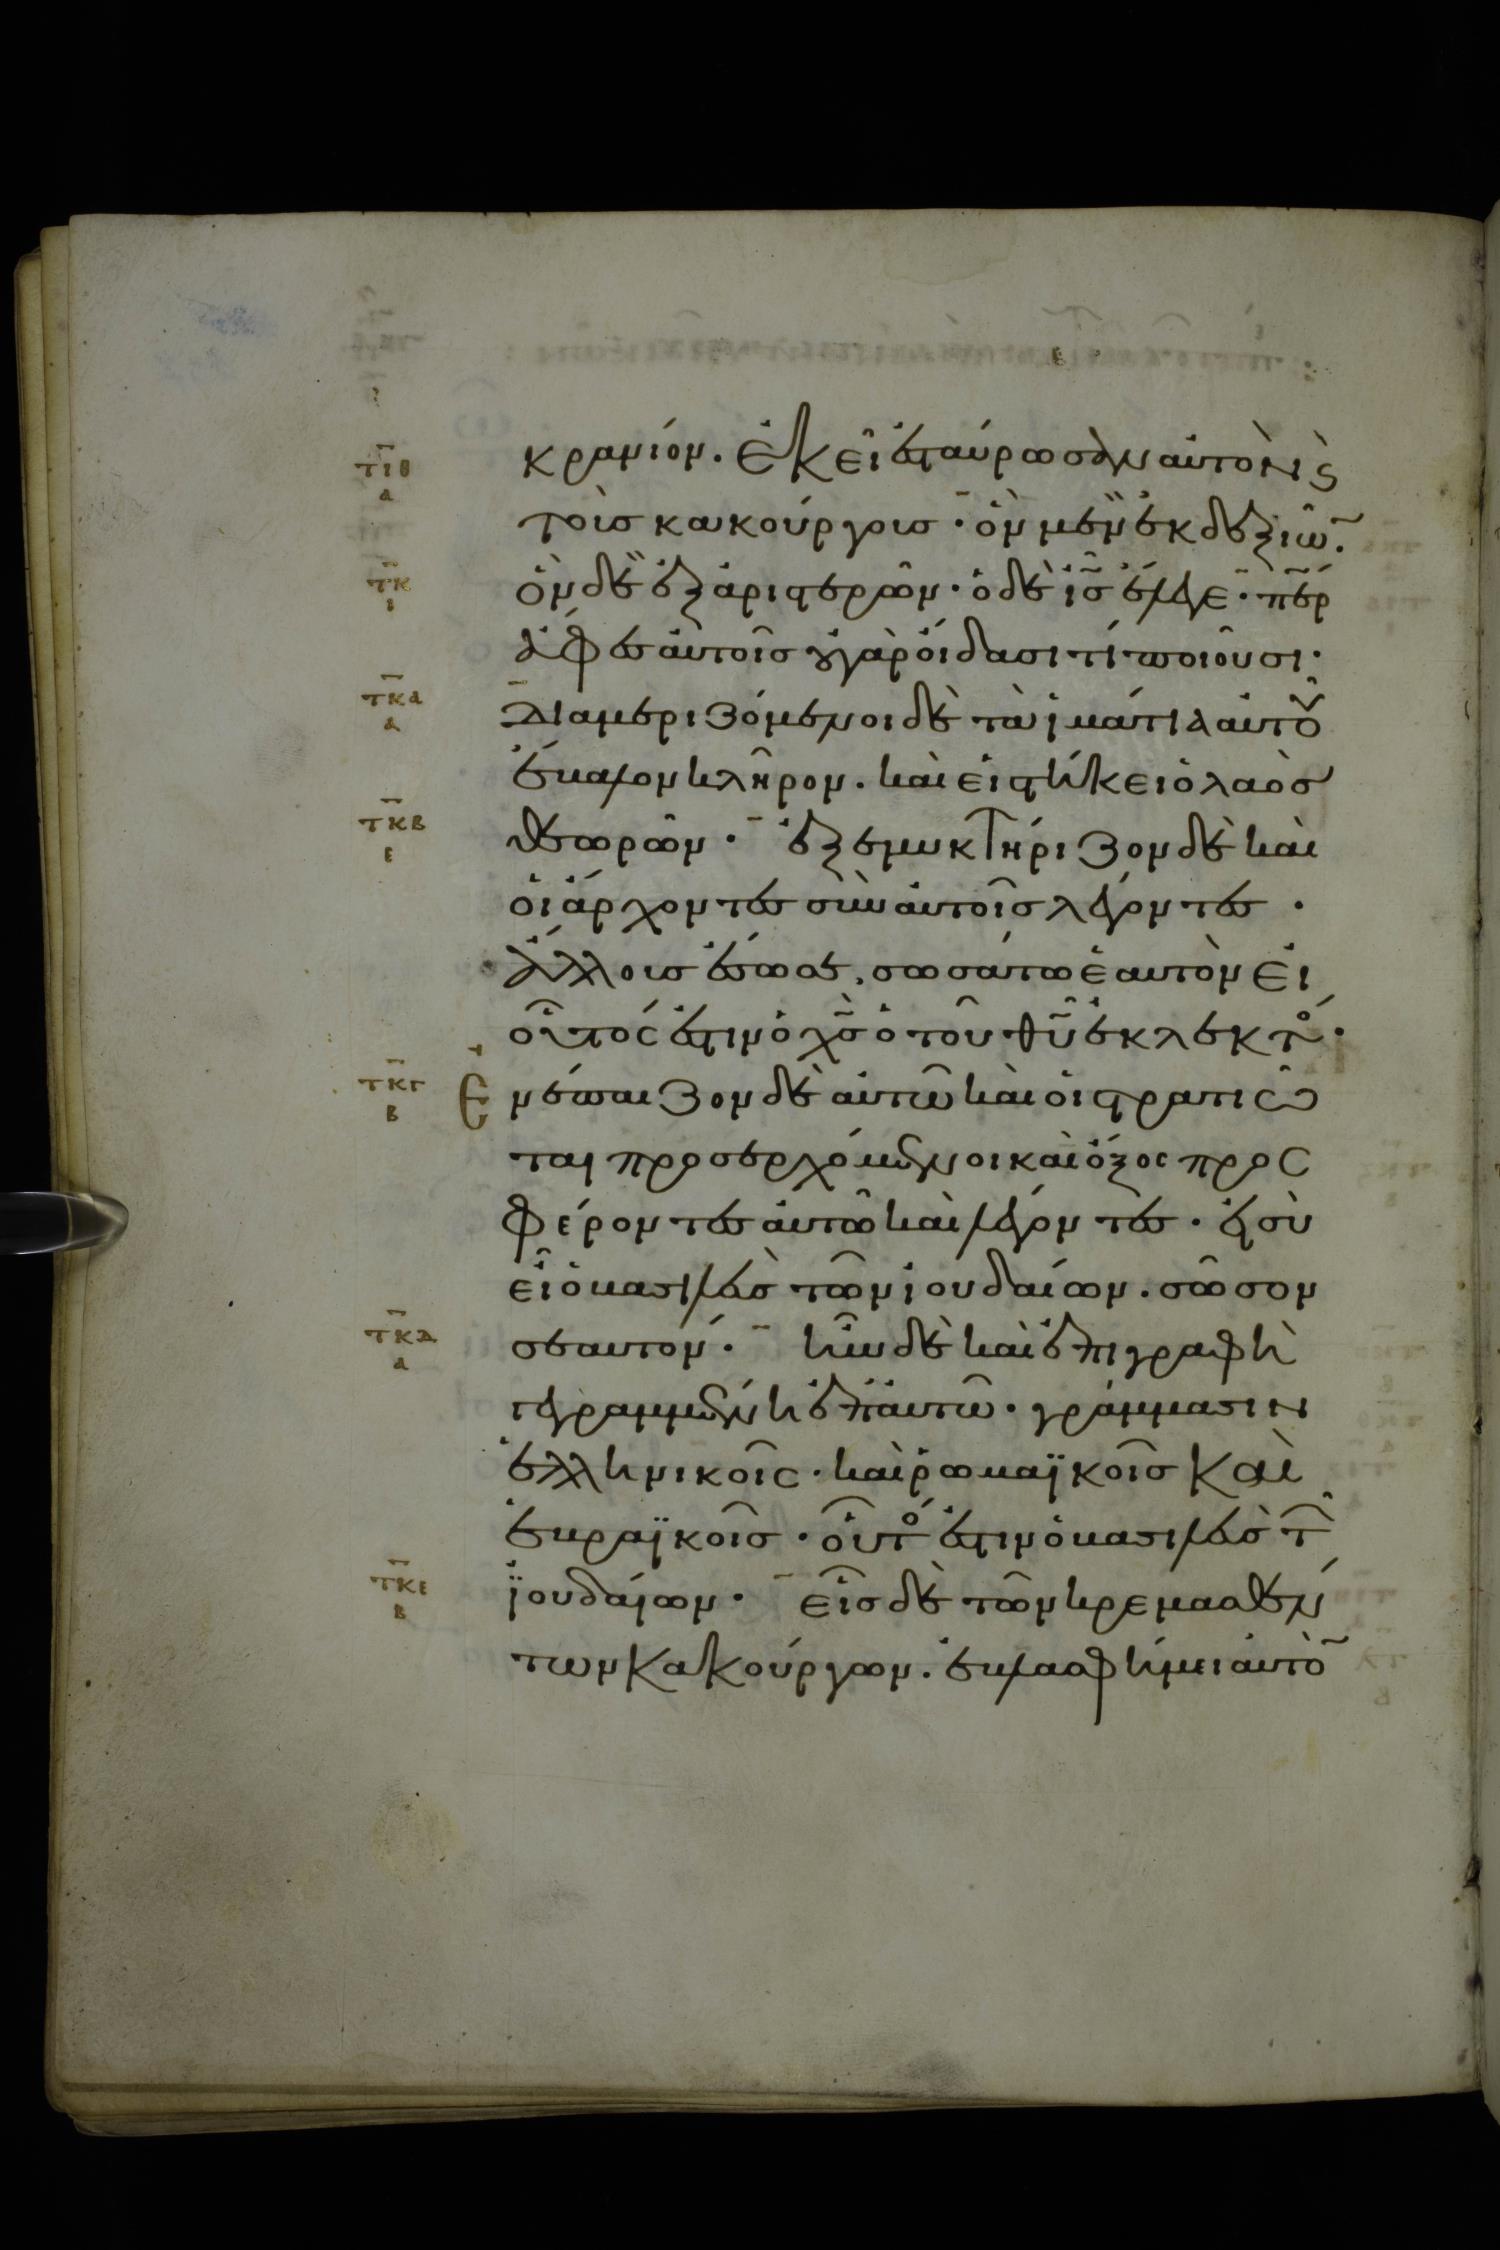 τιθ α
κρανίον. ἐκεῖ ἐσταύρωσαν αὐτὸν ϛ̀
τοὺσ κακούργουσ · ὃν μὲν ἐκ δεξιῶ̅.
τκ ι
ὃν δὲ ἐξ ἀριστερῶν · ὁ δὲ ι̅σ̅ ἔλεγε · π̅ε̅ρ̅
ἄφεσ αὐτοῖσ οὐ γὰρ οἴδασι τί ποιοῦσι ·
τκα α
Διαμεριζόμενοι δὲ τὰ ἱμάτια αὐτοῦ
ἔβαλον κλῆρον. καὶ εἱστήκει ὁ λαὸσ
τκβ ε
θεωρῶν · ἐξεμυκτήριζον δὲ καὶ
οἱ ἄρχοντεσ σὺν αὐτοῖσ λέγοντεσ ·
ἄλλουσ ἔσωσε, σωσάτω ἑαυτὸν εἰ
οὗτόσ ἐστιν ὁ χ̅σ̅ ὁ τοῦ θ̅υ̅ ἐκλεκτό ·
τκγ β
Ενέπαιζον δὲ αὐτῶ καὶ οἱ στρατιῶ
ται προσερχόμενοι καὶ ὄξος προσ
φέροντεσ αὐτῶ καὶ λέγοντεσ · εἰ σὺ
εἶ ὁ βασιλεὺσ τῶν ἰουδαίων. σῶσον
τκδ α
σεαυτόν · ἦν δὲ καὶ ἐπιγραφὴ
γεγραμμένη ἐπ αὐτῶ · γράμμασιν
ἑλληνικοῖς · καὶ ῥωμαϊκοῖσ καὶ
ἑβραϊκοῖσ · οὗτό ἐστιν ὁ βασιλεὺσ τ̑
τκε β
ϊουδαίων · εἷσ δὲ τῶν κρεμασθέν
των κακούργων. ἐβλασφήμει αὐτὸ̅